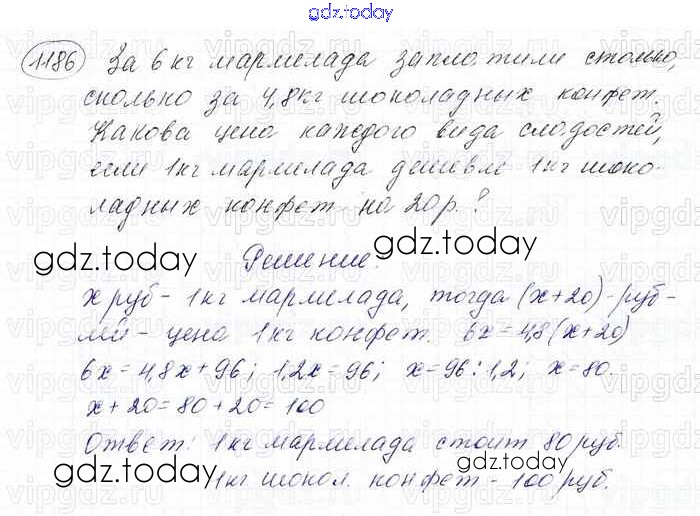 gdz.today
1186 За 6 кг мармелада заплатили столько,
сколько за 4,8кг шоколадных конфет.
Какова цена каждого вида сладостей,
если 1кг мармелада дешевле 1кг шоко-
ладных конфет на 20р.?
gdz.today
gdz.today
Решение:
х руб - 1кг мармелада, тогда (х+20) - руб -
лей - цена 1кг конфет. 6х = 4,8(х+20)
6х = 4,8х + 96; 1,2х = 96; х = 96 : 1,2; х = 80.
х + 20 = 80 + 20 = 100
Ответ: 1кг мармелада стоит 80 руб.
gdz.today
gdz.today
1кг шокол. конфет - 100 руб.